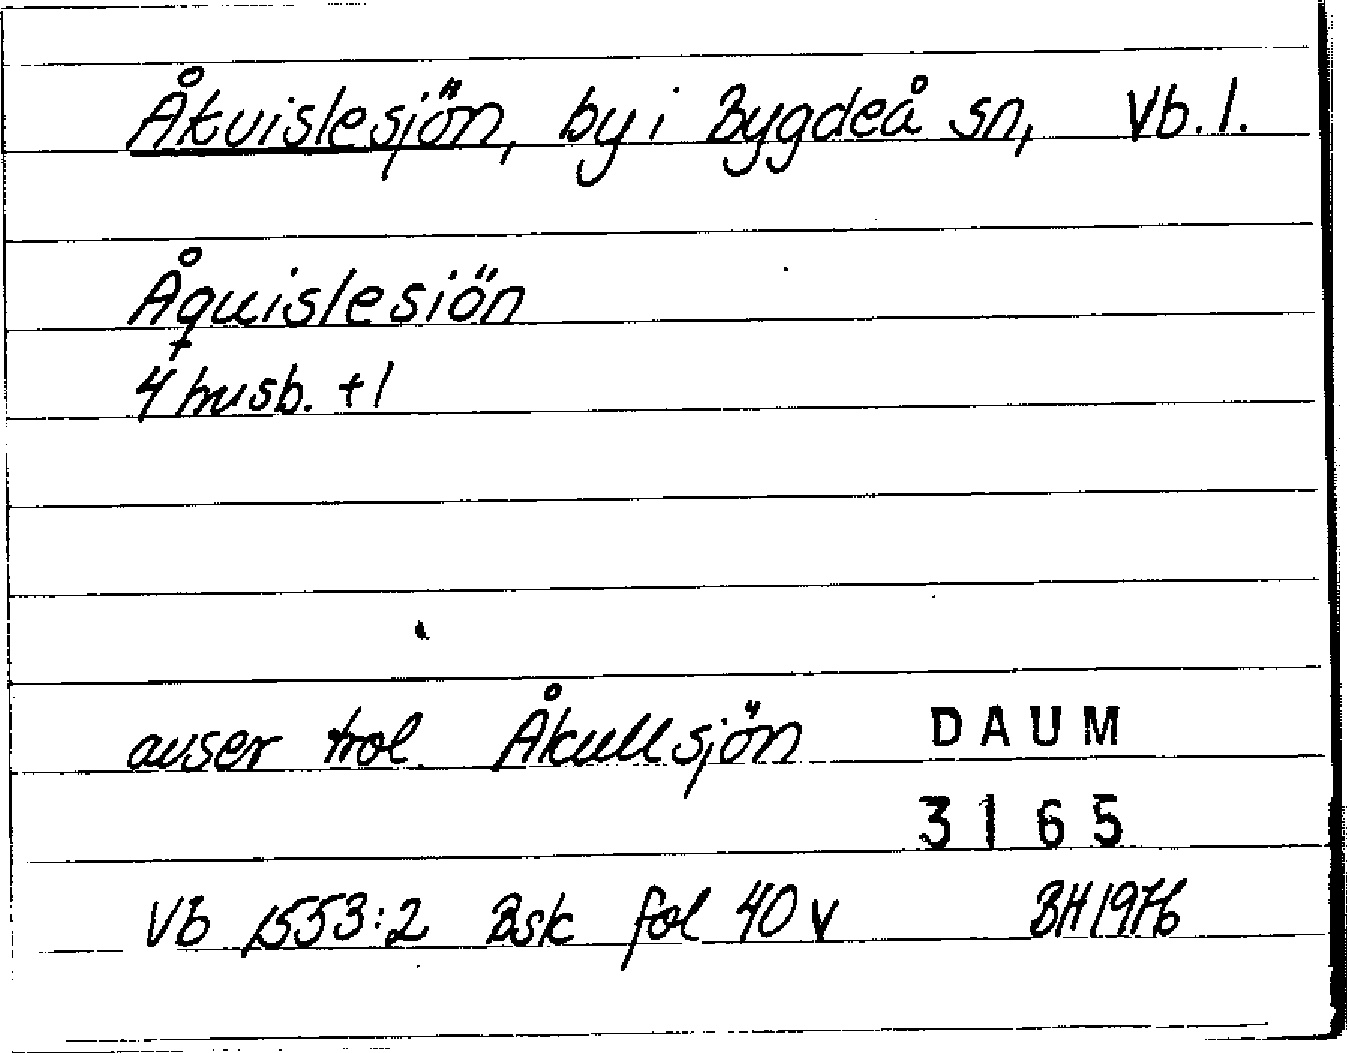 Åkvislesjön, by i Bygdeå sn, Vb. l.
Åquislesiön
4 husb. + l
avser trol. Åkullsjön
DAUM
3165
Vb 1553:2 Bsk fol 40 v BH 1976